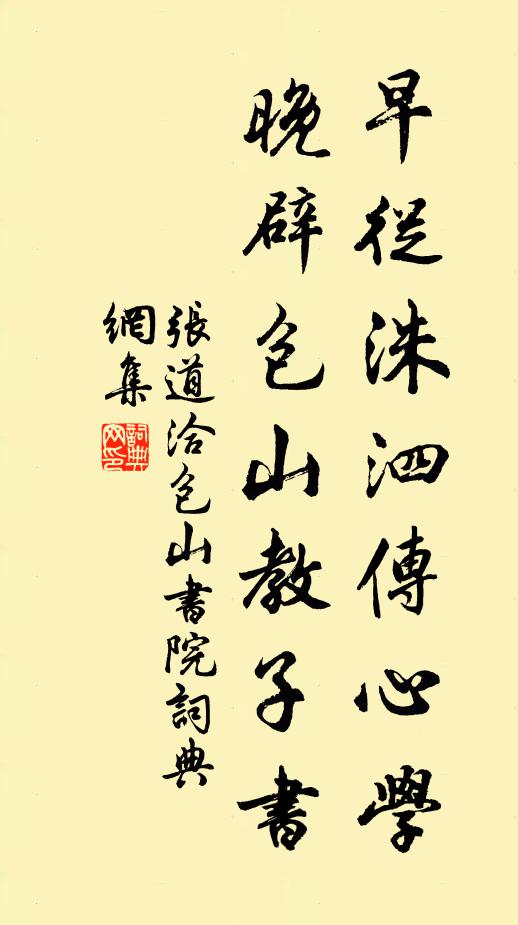 早從洙泗傳心學
晚辟包山教子書
張道洽包山書院詞典
網集
詞典網印